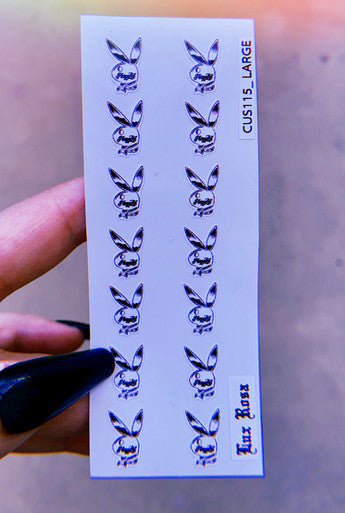 CUS115_LARGE
Lux Rosa